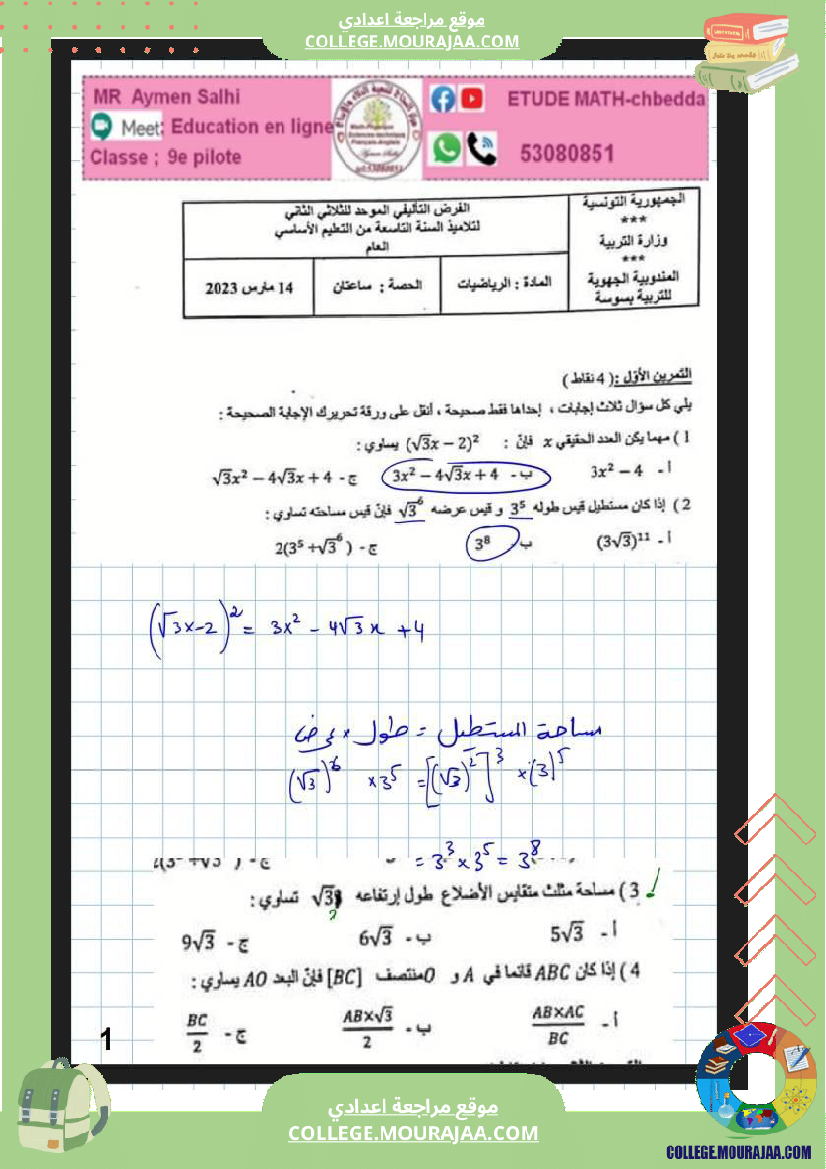 موقع مراجعة اعدادي
COLLEGE.MOURAJAA.COM
MR Aymen Salhi
Meet: Education en ligne
Classe ; 9e pilote
ETUDE MATH-chbedda
53080851
الجمهورية التونسية
***
وزارة التربية
***
المندوبية الجهوية
للتربية بسوسة
الفرض التأليفي الموحد للثلاثي الثاني
لتلاميذ السنة التاسعة من التعليم الأساسي
العام
المادة : الرياضيات
الحصة : ساعتان
14 مارس 2023
التمرين الأوّل : ( 4 نقاط )
يلي كل سؤال ثلاث إجابات ، إحداها فقط صحيحة ، أنقل على ورقة تحريرك الإجابة الصحيحة :
1 ) مهما يكن العدد الحقيقي x فإنّ : (√3x − 2)² يساوي :
أ - 3x² − 4 ب - 3x² − 4√3x + 4 ج - √3x² − 4√3x + 4
2 ) إذا كان مستطيل قيس طوله 3⁵ و قيس عرضه √3⁶ فإنّ قيس مساحته تساوي :
أ - (3√3)¹¹ ب 3⁸ ج - 2(3⁵ + √3⁶)
(√3x-2)² = 3x² - 4√3x + 4
مساحة المستطيل = طول × عرض
(√3)⁶ × 3⁵ = [(√3)²]³ × (3)⁵
= 3³ × 3⁵ = 3⁸
3 ) مساحة مثلث متقايس الأضلاع طول إرتفاعه √3 تساوي :
أ - 5√3 ب - 6√3 ج - 9√3
4 ) إذا كان ABC قائما في A و O منتصف [BC] فإنّ البعد AO يساوي :
أ - AB×AC/BC ب - AB×√3/2 ج - BC/2
1
موقع مراجعة اعدادي
COLLEGE.MOURAJAA.COM
COLLEGE.MOURAJAA.COM